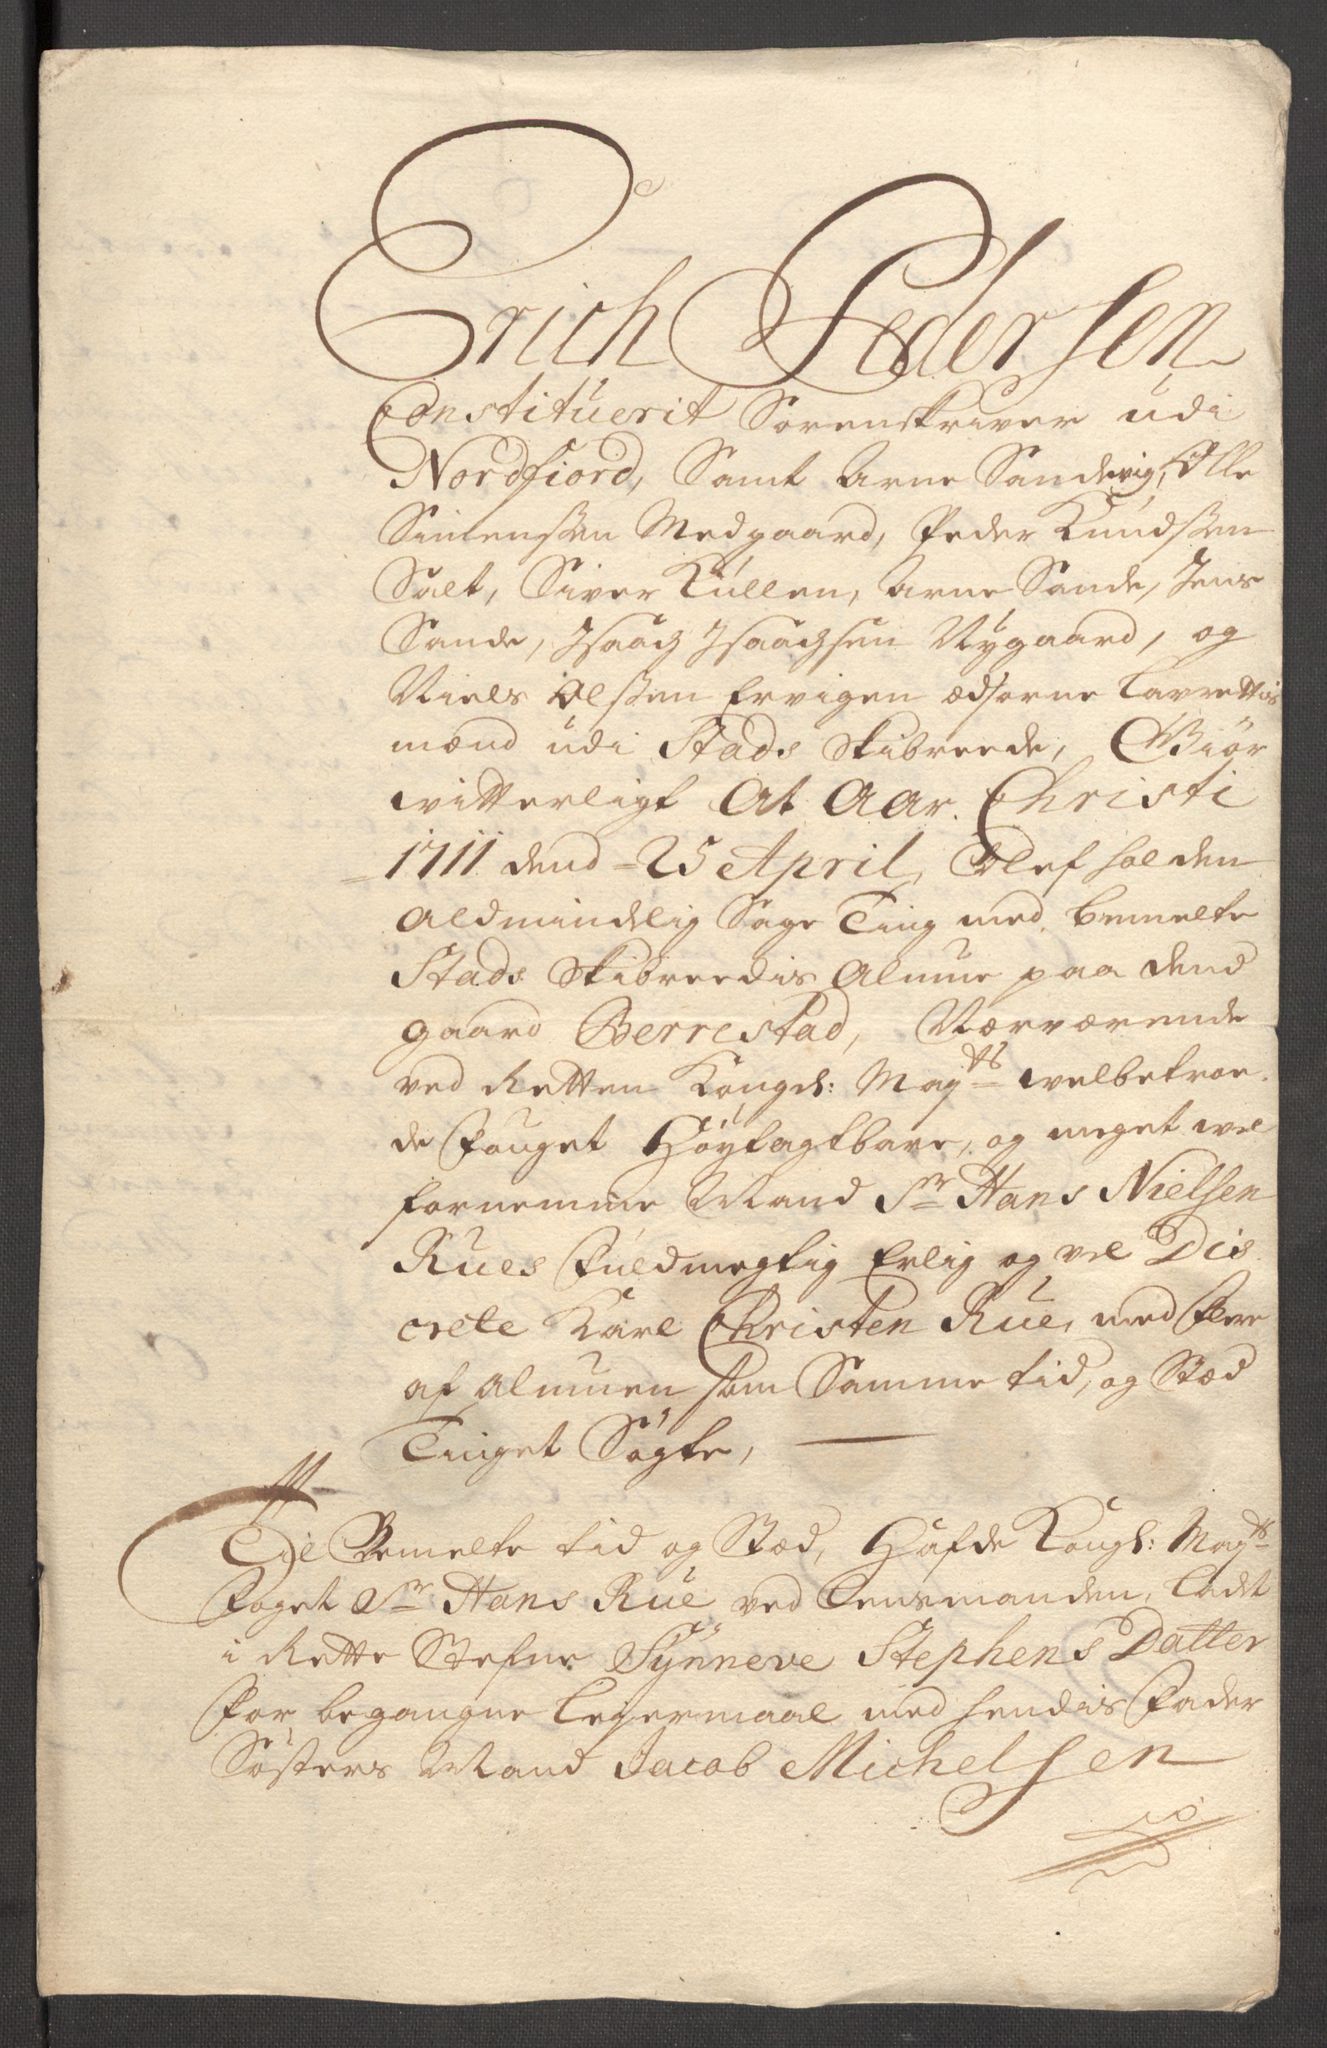 Erich Pedersen
Constituerit Sorenskriver udi
Nordfiord, Samt Arne Sandvig, Olle
Simenssen Medgaard, Peder Knudssen
Salt, Siver Küllen, Arne Sande, Jens
Sande, Isaach Isaachsen Nygaard, og
Niels Olssen Ervigen Edsorne Lavrettis
mænd udi Stads Skibreede, Giör
vitterligt At Aar Christi
1711 dend 25 April, Blef holden
Aldmindelig Sage Ting med bemelte
Stads Skibreedis Almue paa dend
gaard Berrestad, Nærværende
ved Retten Kongl: Mayts welbetroe
de Fouget Höytagtbare, og meget wel
fornemme Mand Sr Hans Nielsen
Rues Fuldmegtig Erlig og vel Dis
crete Karl Christen Rue, med flere
af Almuen som Samme tid, og Stæd
Tinget Sögte,
Til Bemelte tid og Stæd, Hafde Kongl: Mayts
Foget Sr Hans Rue ved Lensmanden, ladet
i Rette Stefne Synneve Stephens Datter
For begangne Leyermaal med hendis Fader
Sösters Mand Jacob Michelsen